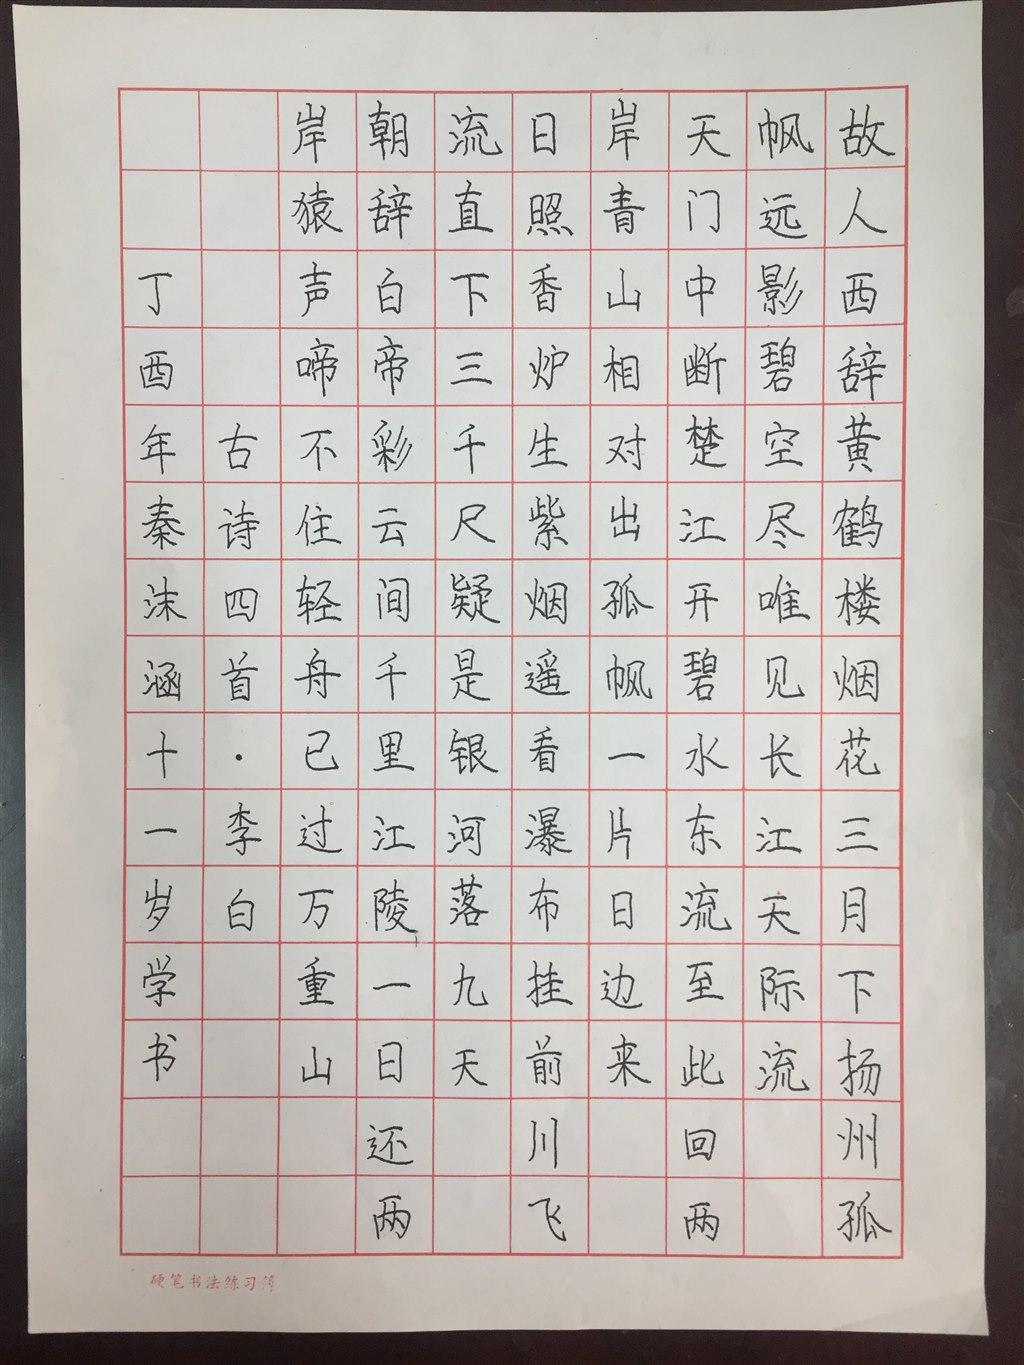 故人西辞黄鹤楼烟花三月下扬州孤
帆远影碧空尽唯见长江天际流
天门中断楚江开碧水东流至此回两
岸青山相对出孤帆一片日边来
日照香炉生紫烟遥看瀑布挂前川飞
流直下三千尺疑是银河落九天
朝辞白帝彩云间千里江陵一日还两
岸猿声啼不住轻舟已过万重山
古诗四首·李白
丁酉年秦沫涵十一岁学书
硬笔书法练习簿